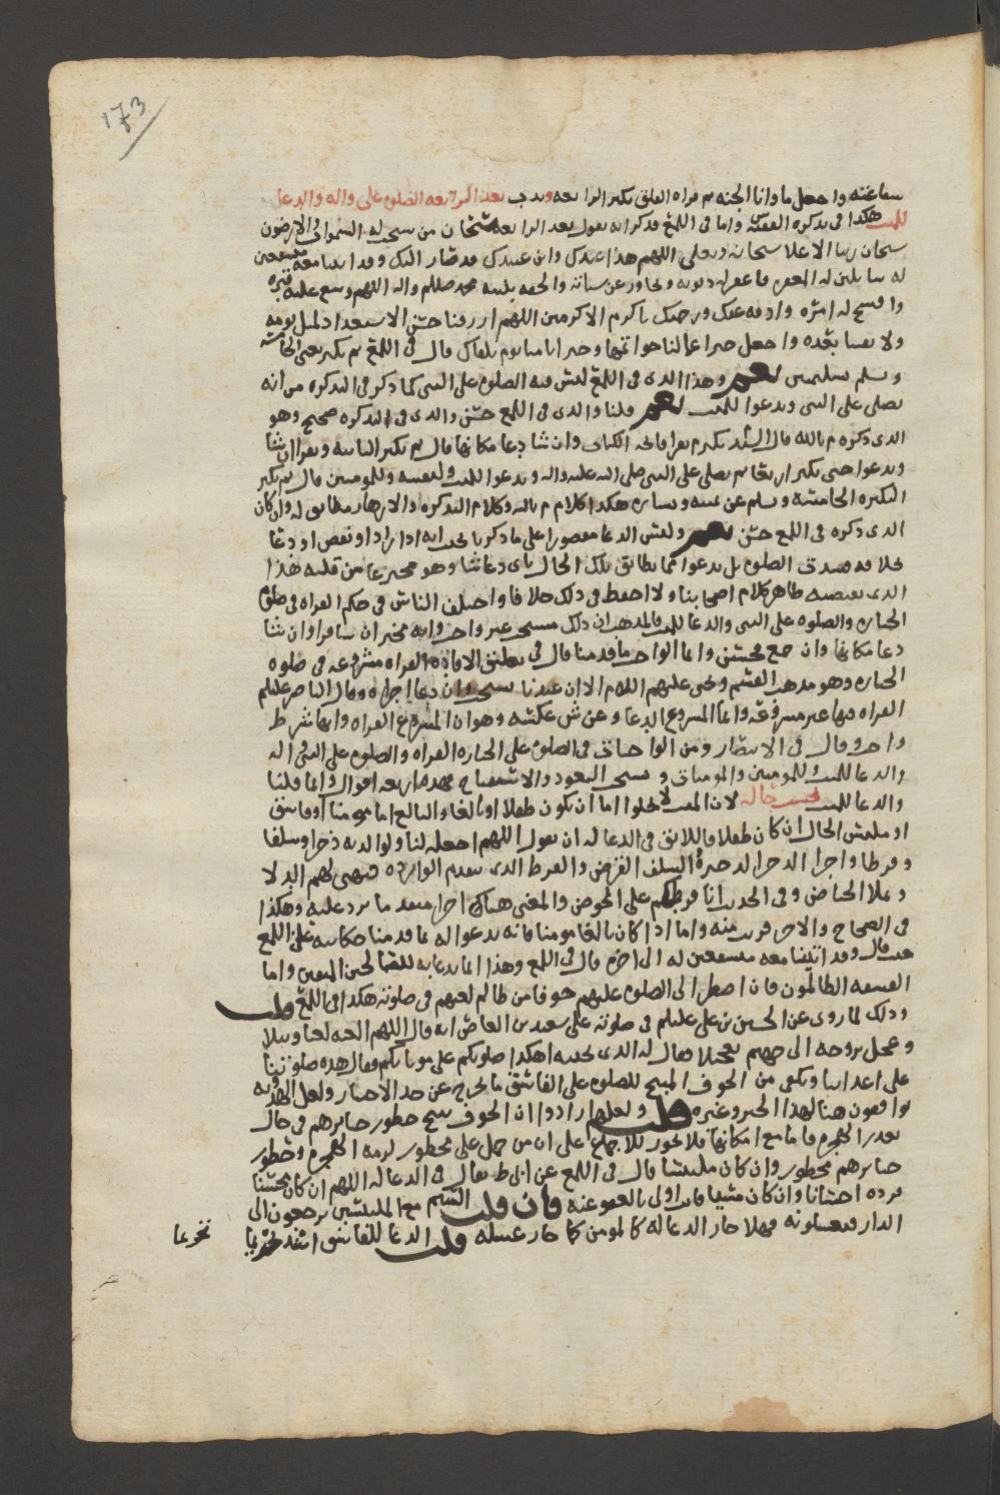 173
شفاعته واجعل مأوانا الجنة ثم قراءة الفلق ثم تكبير الرابعة وندب بعد الرابعة الصلوة على واله والدعا
للميت هكذا في تذكرة الفقيه واما في اللمع فذكر انه يقول بعد الرابعة سبحان من سبحت له السموات والارضون
سبحان ربنا الاعلا سبحانه وتعلى اللهم هذا عبدك وابن عبديك قد صار اليك وقد اتينا معه مستشفعين
له سايلين له المغفرة فاغفر له ذنوبه وتجاوز عن سياته والحقه بنبيه محمد صللم واله اللهم وسع عليه قبره
وافسح له امره واذقه عفوك ورحمتك يا اكرم الاكرمين اللهم ارزقنا حسن الاستعداد لمثل يومه
ولا تفتنا بعده واجعل خير اعمالنا خواتمها وخير ايامنا يوم نلقاك قال في اللمع ثم يكبر يعني الخامسة
ويسلم تسليمتين نعم وهذا الذي في اللمع ليس فيه الصلوة على النبي كما ذكر في التذكرة من انه
يصلي على النبي ويدعوا للميت نعم قلنا والذي في اللمع حسن والذي في التذكرة صحيح وهو
الذي ذكره م بالله قال السيد يكبر ثم يقرا فاتحة الكتاب وان شا دعا مكانها قال ثم يكبر الثانية ويقرا ان شا
ويدعوا حتى يكبر اربعا ثم يصلي على النبي صلى الله عليه واله ويدعوا للميت ولنفسه وللمومنين قال ثم يكبر
التكبيرة الخامسة ويسلم عن يمينه ويساره هكذا كلام م بالله وكلام التذكرة والازهار مطابق له وان كان
الذي ذكره في اللمع حسن نعم وليس الدعا مقصورا على ما ذكر بالحيث انه اذا زاد او نقص او دعا
بخلافه فسدت الصلوة بل يدعوا بما يطابق تلك الحال باي دعا شا وهو مخير عا من قلبه هذا
الذي يقتضيه ظاهر كلام اصحابنا ولا احفظ في ذلك خلافا واختلف الناس في حكم القراة في صلوة
الجنازة والصلوة على النبي والدعا للميت فالمذهب ان ذلك مستحب غير واجب وانه مخير ان شا قرا وان شا
دعا مكانها وان جمع فحسن وانما الواجب ما قدمنا قال في تعليق الافادة القراة مشروعة في صلوة
الجنازة وهو مذهب القسم ويحيى عليهم السلام الا ان عندنا يستحب وان دعا اجزاه وقال الناصر عليلم
القراة فيها غير مشروعة وانما المشروع الدعا وعن ش عكسه وهو ان المشروع القراة وانها شرط
واجب وقال في الانتصار ومن الواجبات في الصلوة على الجنازة القراة والصلوة على النبي اله
والدعا للميت وللمومنين والمومنات ويستحب التعوذ والاستفتاح فهذه اربعه اقوال وانما قلنا
والدعا للميت بحسب حاله لان الميت لا يخلوا اما ان يكون طفلا او بالغا والبالغ اما مومنا او فاسق
او ملتبس الحال ان كان طفلا فاللائق في الدعا له ان يقول اللهم اجعله لنا ولوالديه ذخرا وسلفا
وفرطا واجرا الذخر الذخيرة والسلف القرض والفرط الذي يتقدم الواردة فيهيى لهم الدلا
ويملا الحياض وفي الحديث انا فرطكم على الحوض والمعنى هناك اجرا متقدما يرد عليه وهكذا
في الصحاح والاجر قريب منه واما اذا كان بالغا مومنا فانه يدعو اله بما قدمنا حكايته على اللمع
حيث قال وقد اتينا معه مستشفعين له الى اخره قال في اللمع وهذا انما يدعا به للصالحين المتقين واما
الفسقه الظالمون فان اضطر الى الصلوة عليهم خوفا من ظالم لعنهم في صلوته هكذا في اللمع قلت
وذلك لما روي عن الحسين بن علي عليلم في صلوته على سعيد بن العاص انه قال اللهم العنه لعنا وبيلا
وعجل بروحه الى جهنم تعجيلا فقال له الذي بجنبه اهكذا صلوتكم على موتاكم فقال هذه صلوتنا
على اعداينا ويكفي من الخوف المبيح للصلوة على الفاسق ما يخرج عن حد الاختيار ولعل الهدويه
يوافقون هنا لهذا الخبر وغيره قلت ولعلهم ارادوا ان الخوف يبيح حضور جنايزهم في حال
تعذر الهجرة فاما مع امكانها فلا يجوز للاجماع على ان من حمل على محظور لزمه الهجرة وحضور
جنايزهم محظور وان كان ملتبسا قال في اللمع عن ابي ط يقال في الدعا له اللهم ان كان محسنا
فزده احسانا وان كان مسيا فانت اولى بالعفو عنه فان قلت اليتيم مع الملتبس يرجعون الى
الدار فيغسلونه فهلا جاز الدعا له كالمومن كما جاز غسله قلت الدعا للفاسق اشد تحريما
تحريما